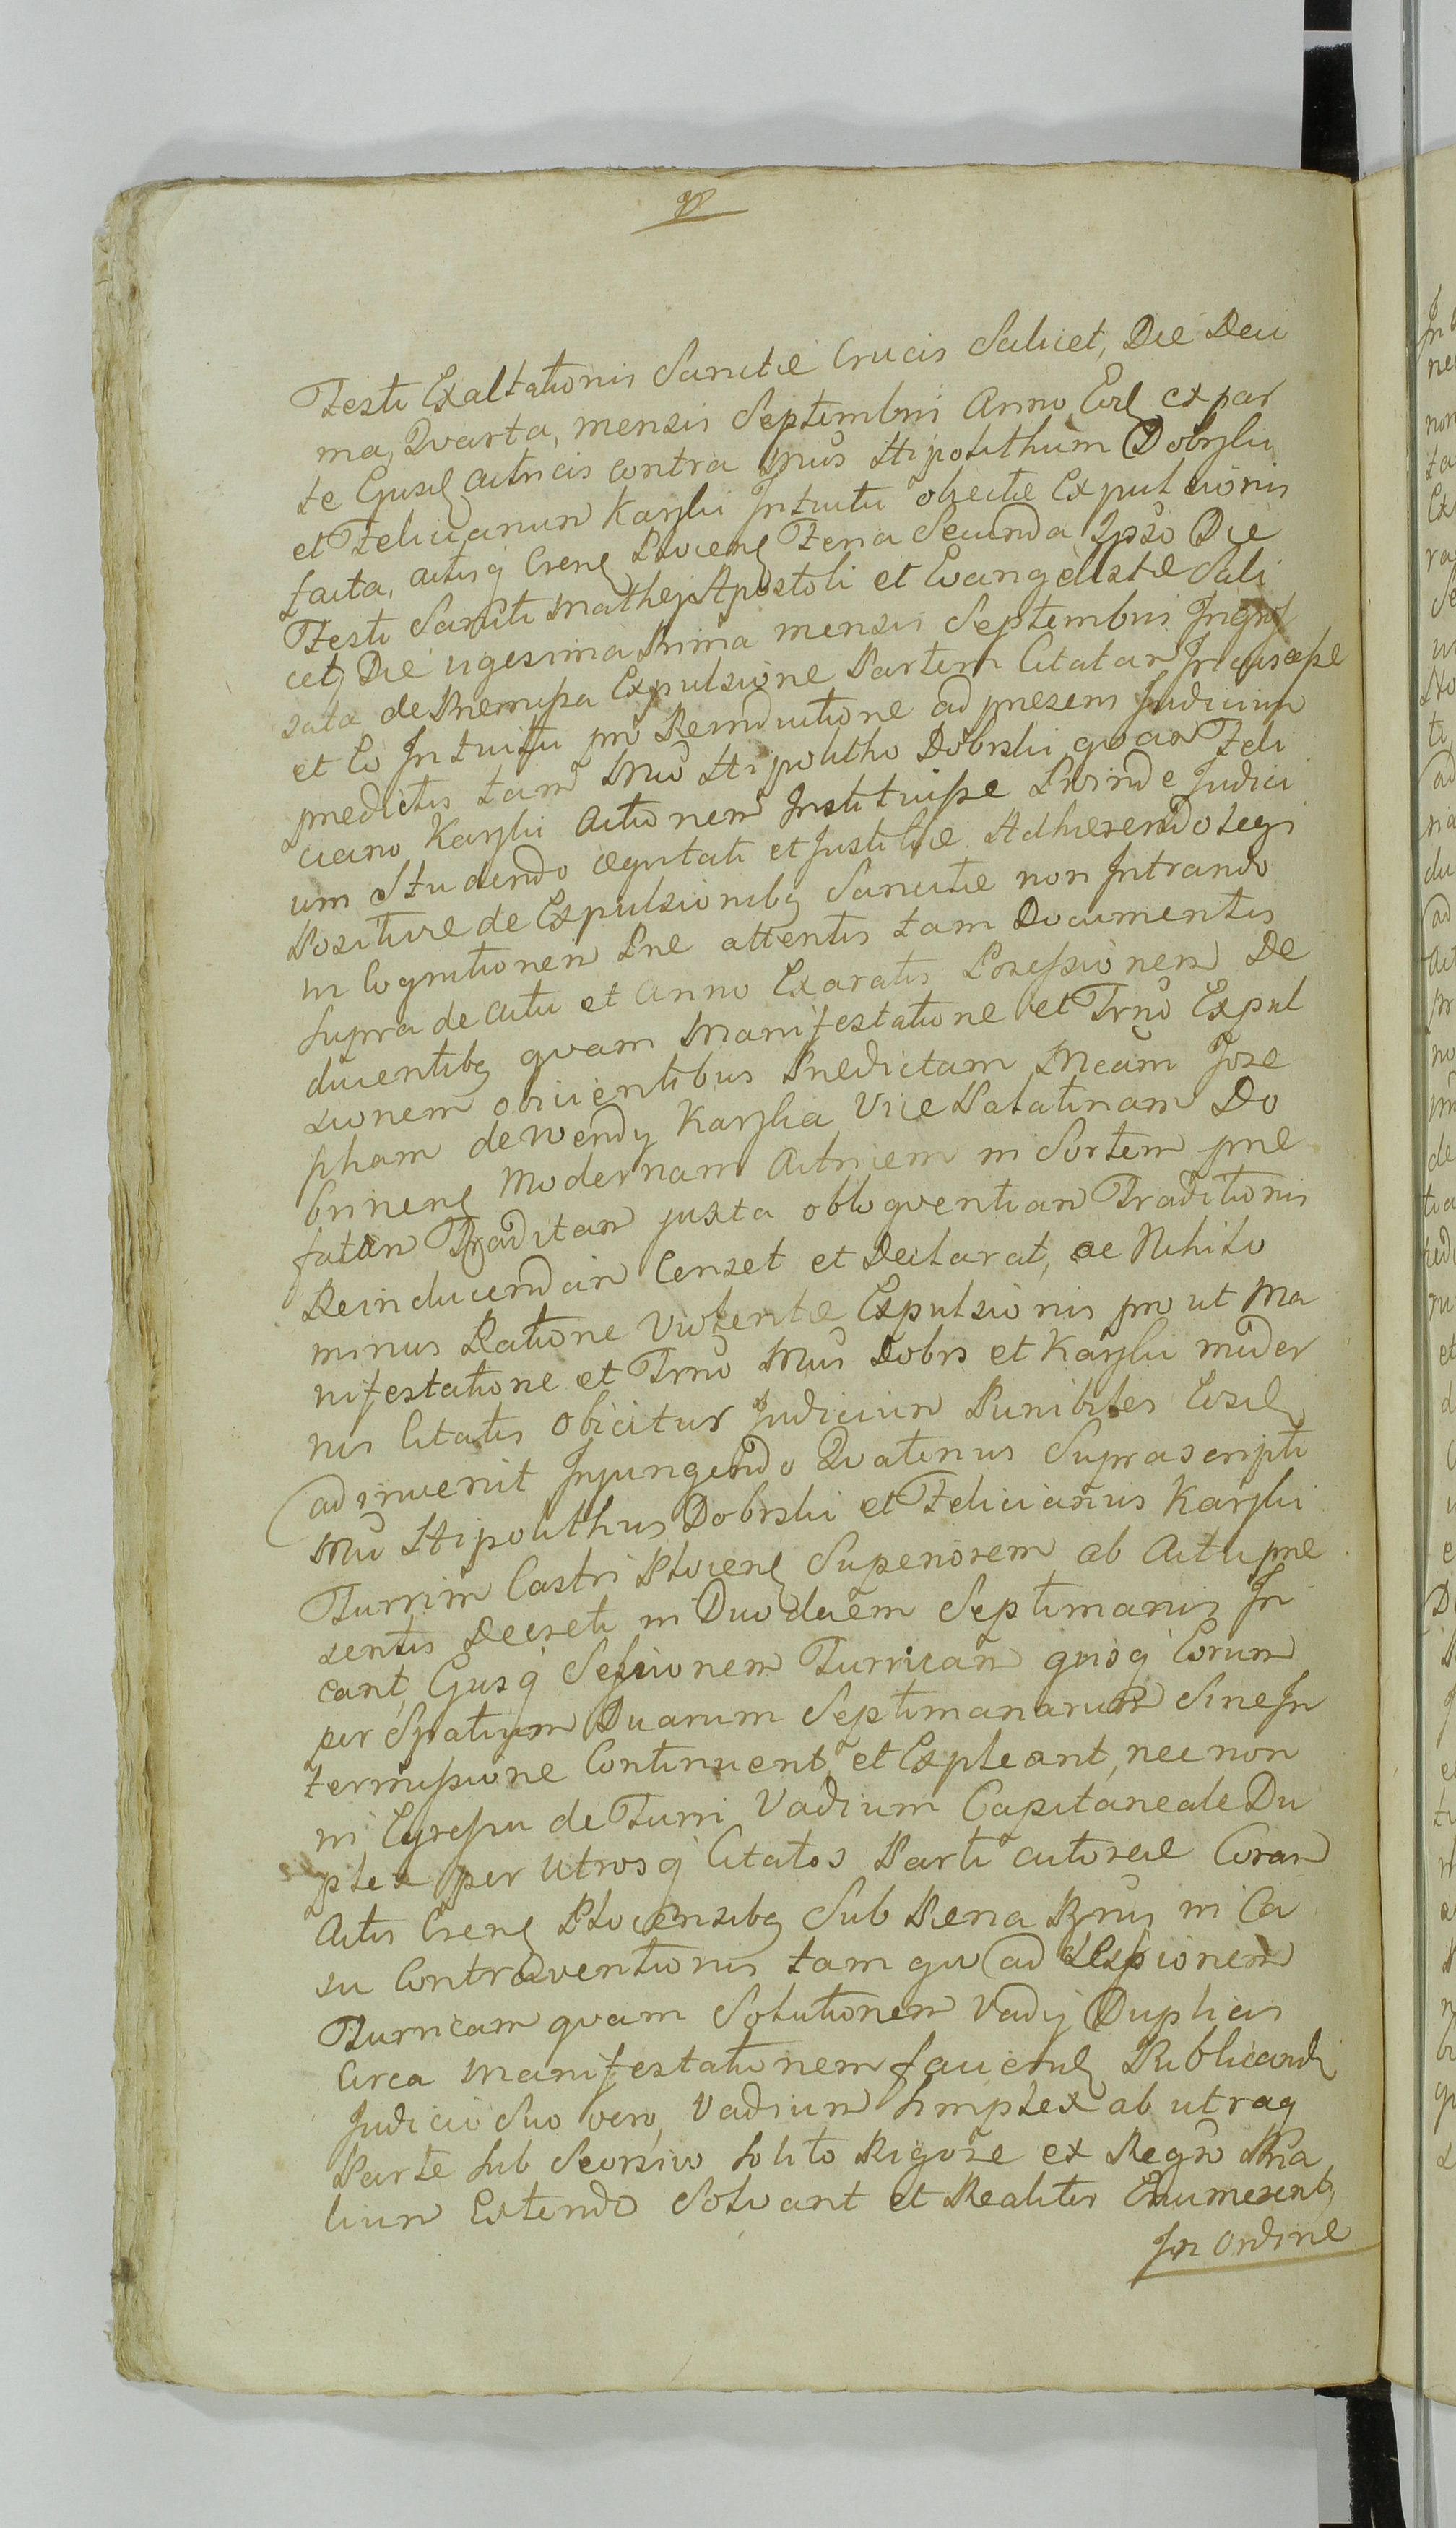 Festi Exaltationis Sanctæ Crucis Scilicet, Die Deci
ma, Qvarta, mensis Septembris Anno Eod expar
te Ejusd Actricis contra Mus Hipolithum Dobrski
et Felicianum Karski Intuitu objectæ Expulsionis
facta, Actisq Crens Plocens Feria Secunda Ipso Die
Festi Sancti Mathej Apostoli et Evangelistæ Scili
cet, Die vigesima Prima mensis Septembris Ingros
sata de Præmissa Expulsione Partem Citatam Incusasse
et Eo Intuitu pro Reinductione ad præsens Judicium
prædictis tam Mo Hipolitho Dobrski qvam Feli
ciano Karski Actionem Instituisse Proinde Judici
um Studendo æqvitati et Justitiæ Adhærendo Legi
Positivæ de Expulsionibq Sancitæ non Intrando
in Cognitionem Pne attentis tam Documentis
Supra de Actu et Anno Exaratis Possessionem De
ducentibq qvam Manifestatione et Trno Expul
sionem obicientibus Prædictam Mcam Jose
pham de Wendy Karska Vice Palatinam Do
brinens Modernam Actricem in Sortem præ
fatam Traditam juxta obloqventiam Traditionis
Reinducendam Censet et Declarat, ac Nihilo
minus Ratione Violentæ Expulsionis pro ut Ma
nifestatione et Trno Mus Dobrs et Karski moder
nis Citatis obicitur Judicium Punibiles Eosd
adinvenit Injungendo Qvatenus Suprascripti
Mci Hipolithus Dobrski et Felicianus Karski
Turrim Castri Plocens Superiorem ab Actu præ
sentis Decreti in Duodecem Septimanis In
cant, Ejusq Sessionem Turricam qvisq Eorum
per Spatium Duarum Septimanarum Sine In
termissione Continuent, et Expleant, nec non
in Egressu de Turri Vadium Capitaneale Du
plex per Utrosq Citatos Parti actoreæ Coram
Actis Crens Plocensibq Sub Pœna Bnis in Ca
su Contraventionis tam quo ad Sessionem
Turricam qvam Solutionem Vadij Duplicis
Circa Manifestationem faciend Publicandi
Judicio Suo vero, Vadium Simplex ab utraq
Parte Sub Seorsivo Solito Rigore ex Regro
lium Extendo Solvant et Realiter Enumerent,
In Ordine